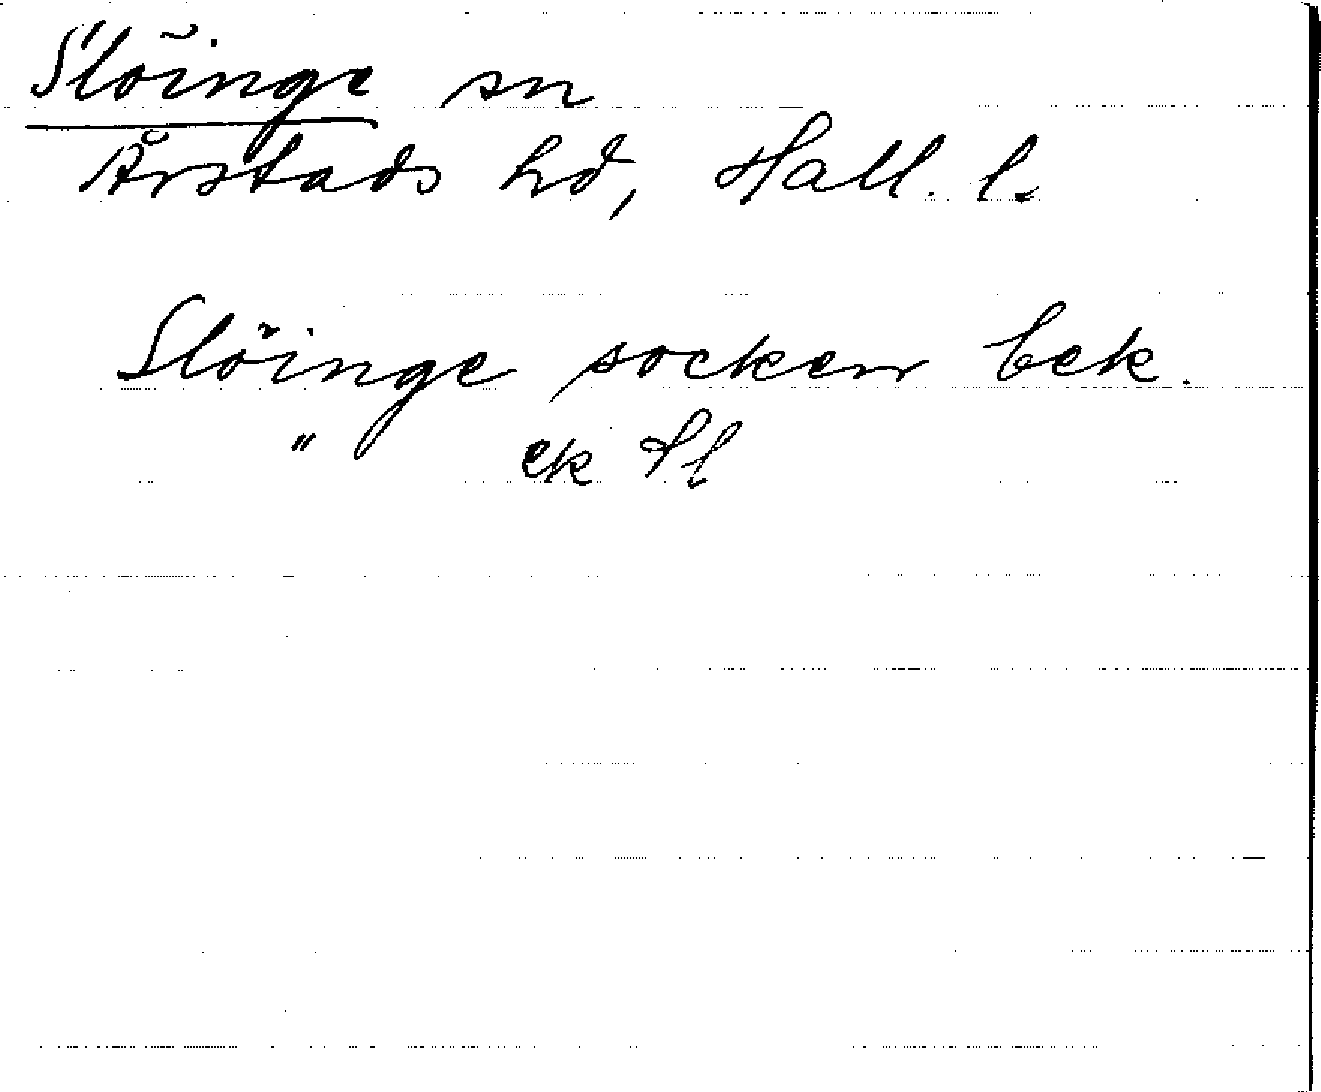 Slöinge sn
Årstads hd, Hall. l.
Slöinge socken bek.
" ek Hl